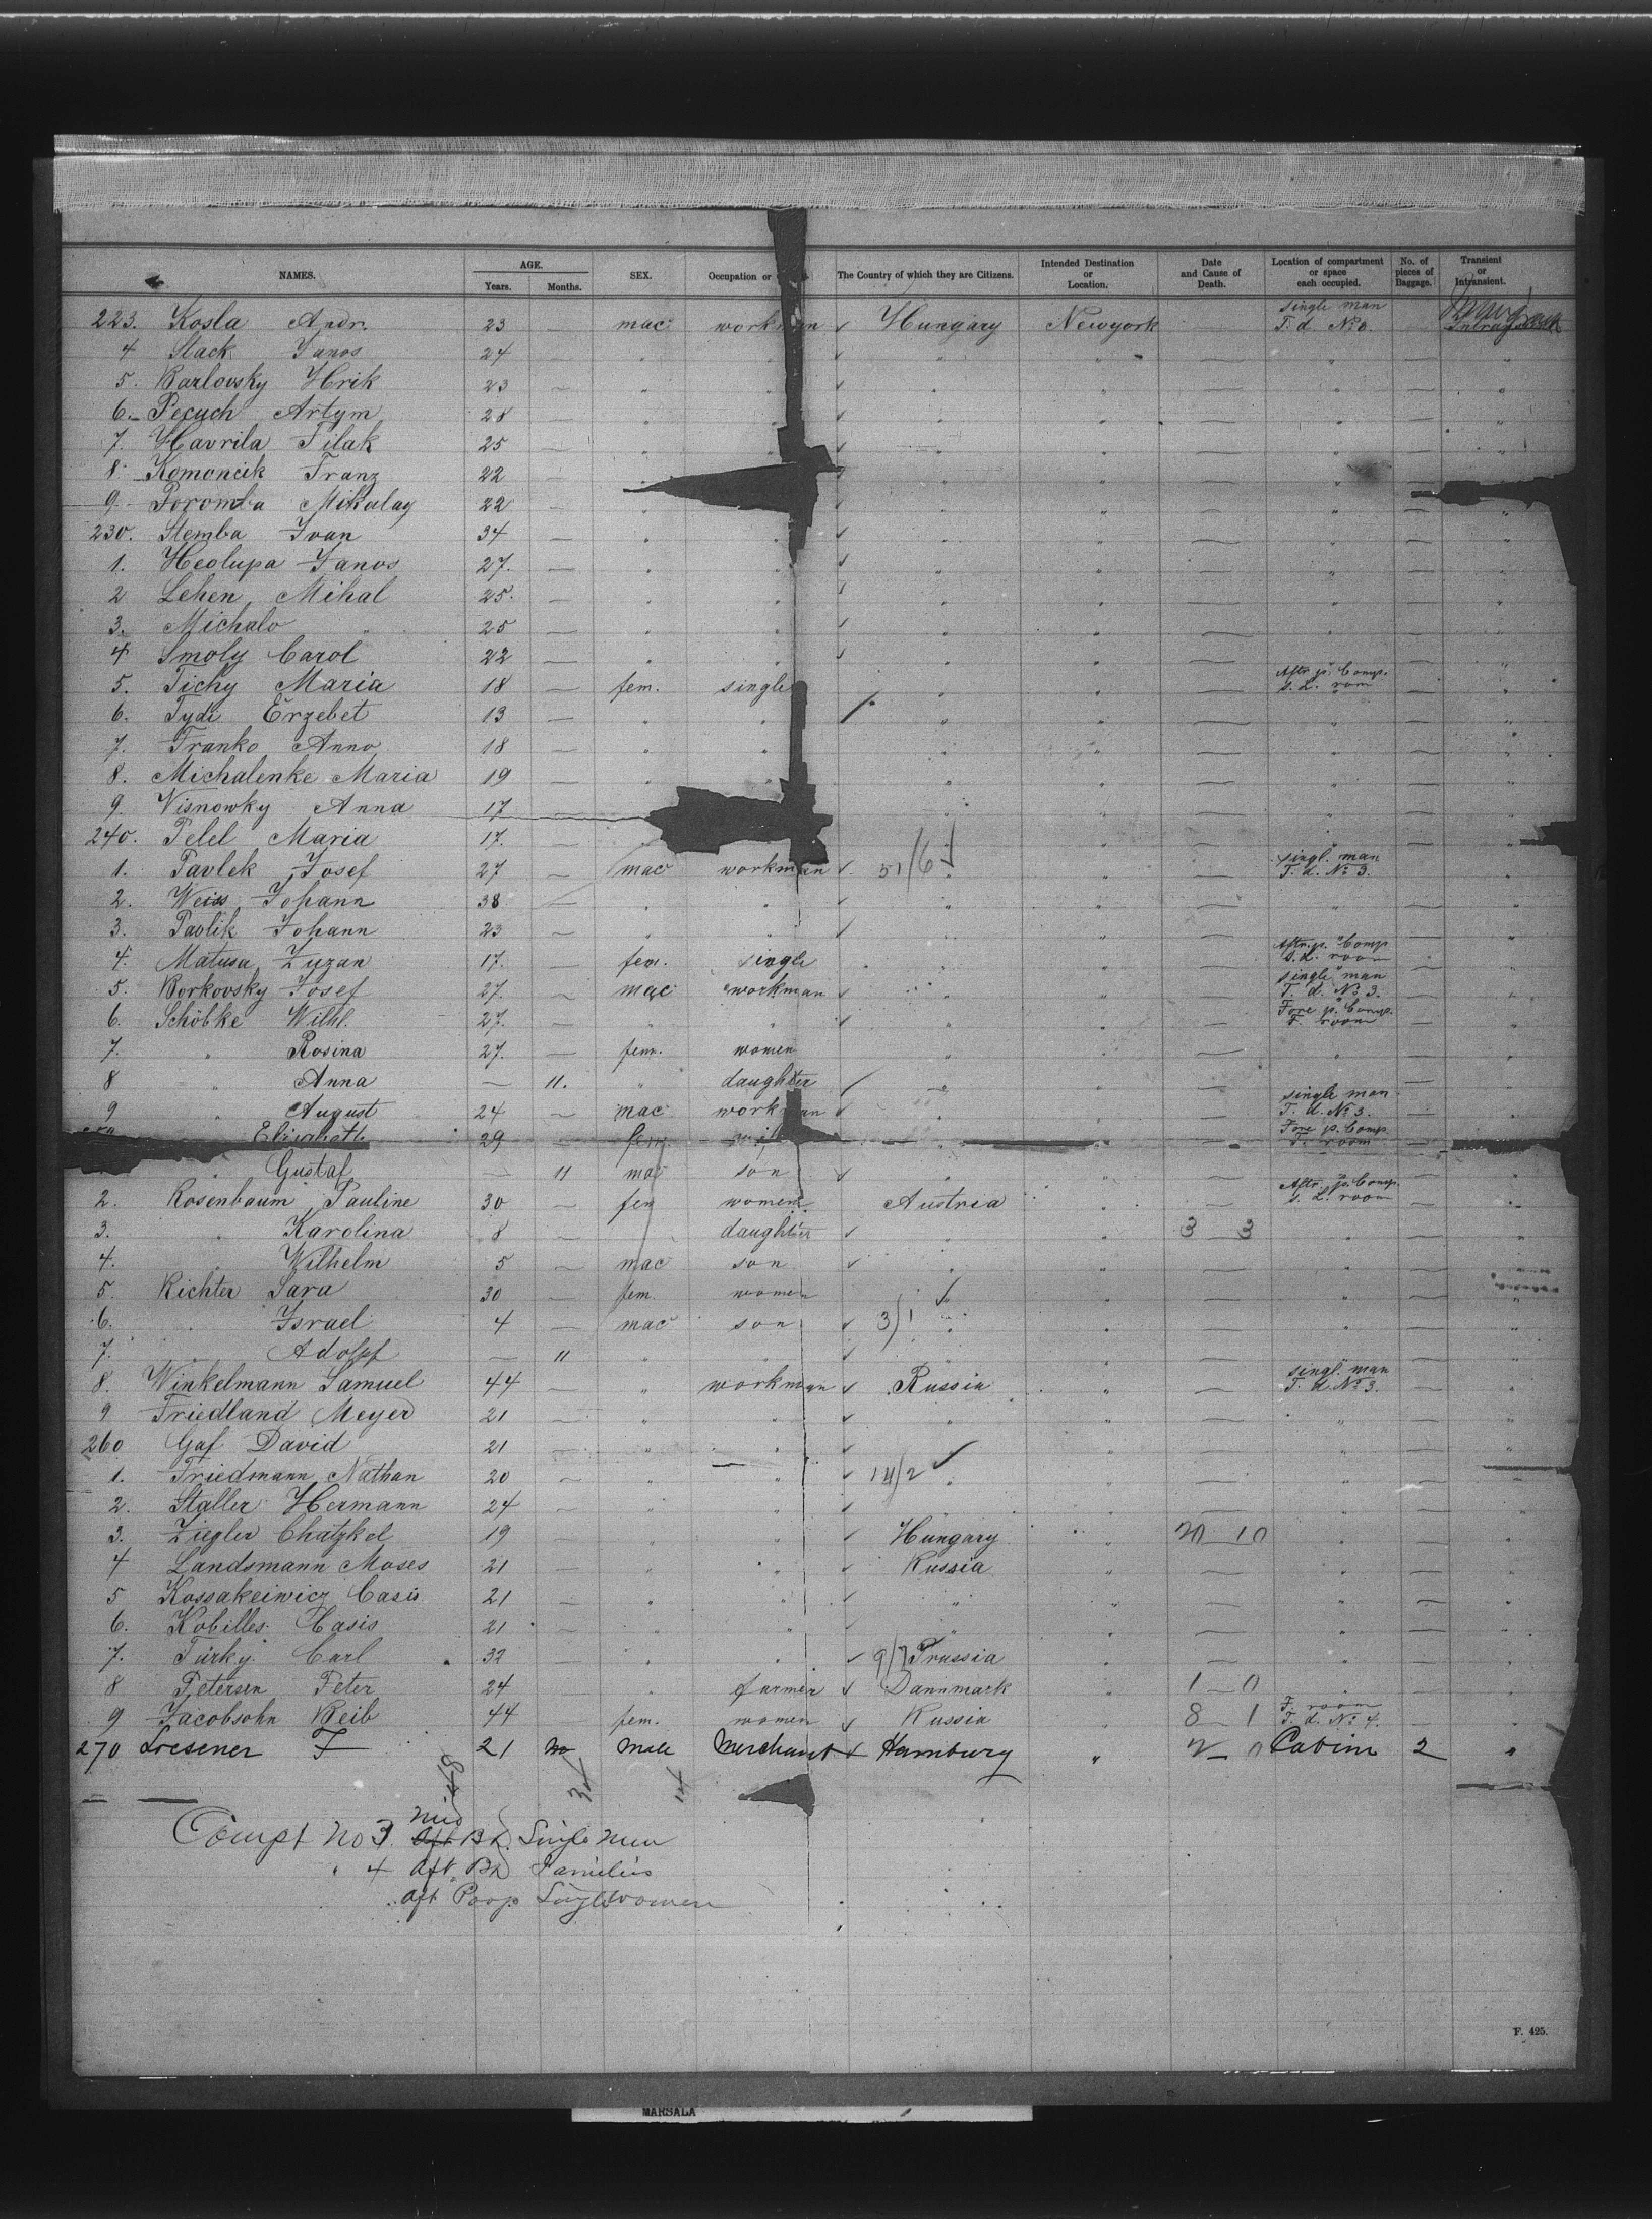 NAMES. AGE. Years. Months. SEX. Occupation or The Country of which they are Citizens. Intended Destination or Location. Date and Cause of Death. Location of compartment or space each occupied. No. of pieces of Baggage. Transient or Intransient.
223. Kosla Andr. 23 mac workman ✓ Hungary Newyork single man T. d. No 3.
4 Slack Janos 24 — " " ✓ " " — " — "
5. Barlovsky Hrik 23 — " " ✓ " " — " — "
6. Pecuch Artym 28 — " " ✓ " " — " — "
7. Havrila Filak 25 — " " ✓ " " — " — "
8. Komoncik Franz 22 — " " — " — "
9 Poromba Mikulay 22 — " ✓ " " — " — "
230. Stemba Ivan 34 — " " ✓ " " — " — "
1. Heolupa Janos 27. — " " ✓ " " — " — "
2 Lehen Mihal 25. — " " ✓ " " — " — "
3. Michalo " 25 — " " ✓ " " — " — "
4 Smoly Carol 22 — " " ✓ " " — " — "
5. Tichy Maria 18 — fem. single " " — Aftr. p. Comp. s. L. room — "
6. Tydi Erzebet 13 — " " / " " — " — "
7. Franko Anna 18 — " " " " — " — "
8. Michalenke Maria 19 — " " " " — " — "
9. Visnowky Anna 17 " " — " — "
240. Pelel Maria 17. — " " — " — "
1. Pavlek Josef 27 — mac workman ✓ 51/6 ✓ " — singl. man T. d. No 3. — "
2. Weiss Johann 38 — " " ✓ " " — " — "
3. Pavlik Johann 23 — " " ✓ " " — " — "
4. Matusa Zuzan 17. — fem. single " " — Aftr. p. Comp s. L. room — "
5. Borkovsky Josef 27. — mac workman ✓ " " — single man T. d. No 3. — "
6. Schöbke Wilhl. 27. — " " ✓ " " — Fore p. Comp. F. room — "
7. " Rosina 27. — fem. women " " — " — "
8 " Anna — 11. " daughter / " " — " — "
9 " August 24 — mac workman ✓ " " — single man T. d. No 3. — "
Elisabeth 29 — fem " — Fore p. Comp F. room — "
" Gustaf — 11 mac son ✓ " " — " — "
2. Rosenbaum Pauline 30 — fem women Austria " — Aftr. p. Comp. s. L. room — "
3. " Karolina 8 — daughter ✓ " " 3 — 3 " — "
4. " Wilhelm 5 — mac son ✓ " " — " —
5. Richter Sara 30 — fem. women ✓ " — " — "
6. " Israel 4 — mac son ✓ 3/1 " " — " — "
7. " Adolf — 11 " " ✓ " " — " — "
8. Winkelmann Samuel 44 — " workman ✓ Russia " — singl. man T. d. No 3. — "
9 Friedland Meyer 21 — " " ✓ " " — " — "
260 Gaf David 21 — " " ✓ " ✓ " — " — "
1. Friedmann Nathan 20 — " " ✓ 14/2 " " — " — "
2. Staller Hermann 24 — " " ✓ " — " — "
3. Ziegler Chatzkel 19 — " " ✓ Hungary " 20 — 10 " — "
4 Landsmann Moses 21 — " " ✓ Russia " — " — "
5 Kossakeiwicz Casis 21 — " " ✓ " " — " — "
6. Kobilles Casis 21 — " " ✓ " " — " — "
7. Türky Carl 32 — " " ✓ 9/7 Prussia " — " — "
8 Petersen Peter 24 — " farmer ✓ Dannmark " 1 — 0 " — "
9 Jacobsohn Beib 44 — fem. women ✓ Russia " 8 — 1 F. room T. d. No 4. — "
270 Lresener F 21 male Merchant ✓ Hamburg " Cabin 2 "
48
Compt No 3 Mid Aft Bh. Single Men
" 4 Aft. Bh Families
Aft Poop Single women
F. 425.
MARSALA